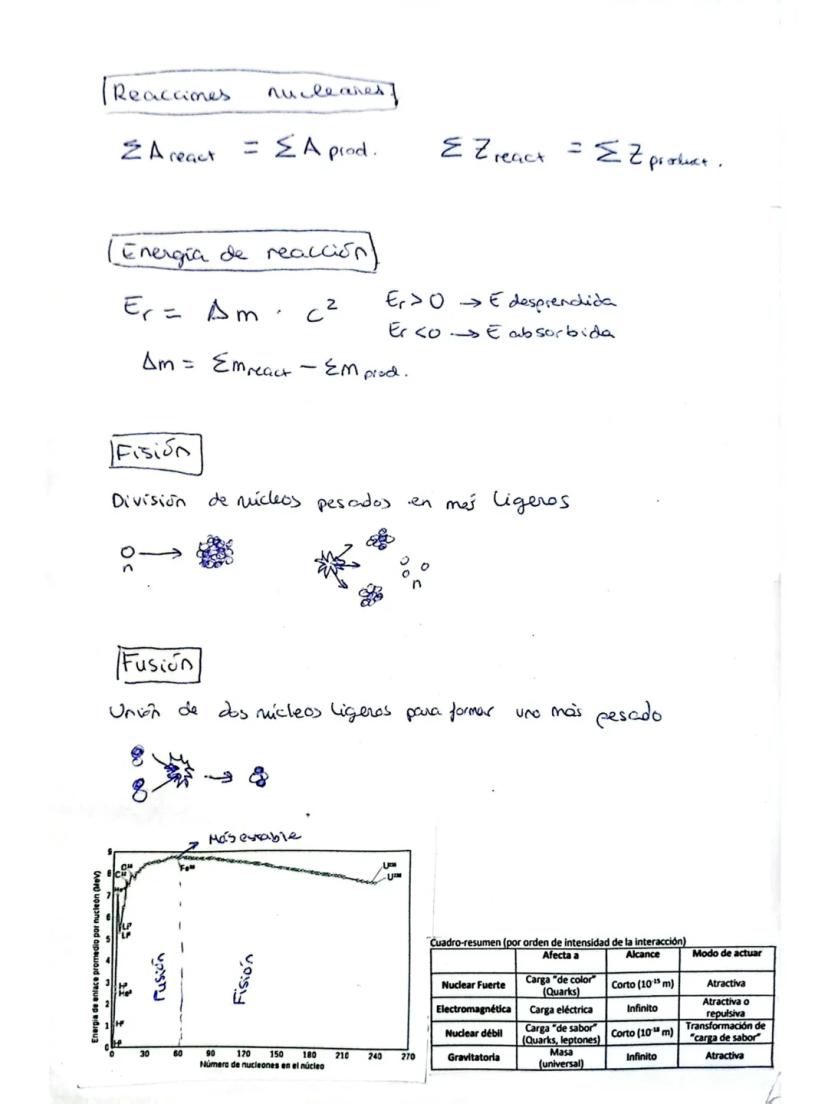 Reacciones nucleares
ΣA react = ΣA prod.    ΣZ react = ΣZ product.
Energía de reacción
Er = Δm · c²    Er > 0 → E desprendida
Er < 0 → E absorbida
Δm = Σm react − Σm prod.
Fisión
División de núcleos pesados en más ligeros
n
n
Fusión
Unión de dos núcleos ligeros para formar uno más pesado
Más estable
Energía de enlace promedio por nucleón (MeV)
9
8
7
6
5
4
3
2
1
0
Fe⁵⁶
U²³⁵
U²³⁸
Li⁷
Li⁶
H³
He³
H²
H¹
Fusión
Fisión
0 30 60 90 120 150 180 210 240 270
Número de nucleones en el núcleo
Cuadro-resumen (por orden de intensidad de la interacción)
Afecta a    Alcance    Modo de actuar
Nuclear Fuerte    Carga "de color" (Quarks)    Corto (10⁻¹⁵ m)    Atractiva
Electromagnética    Carga eléctrica    Infinito    Atractiva o repulsiva
Nuclear débil    Carga "de sabor" (Quarks, leptones)    Corto (10⁻¹⁸ m)    Transformación de "carga de sabor"
Gravitatoria    Masa (universal)    Infinito    Atractiva